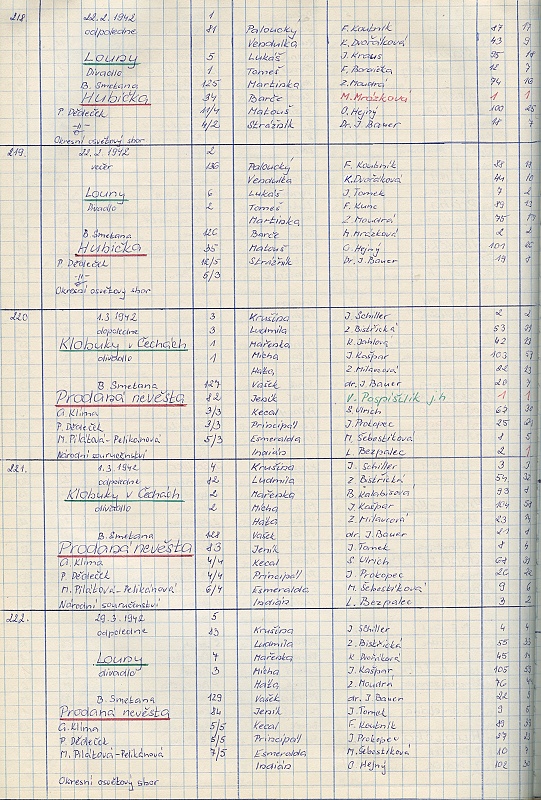 218 22.2.1942 1
odpoledne 81 Paloucký F. Koubník 17 17
Vendulka K. Dvořáková 43 9
Louny 5 Lukáš J. Kraus
Divadlo 1 Tomeš
B. Smetana 125 Martinka Z. Moudrá 74
Hubička 34 Barče M. Mrázková 1 1
P. Dědeček 11/4 Matouš O. Hejný 100 25
-"- 4/2 Strážník Dr. J. Bauer 18 7
Okresní osvětový sbor
219. 22.2.1942 2
večer 136 Paloucký F. Koubník
Vendulka K. Dvořáková 44 10
Louny 6 Lukáš J. Tomek 7 2
Divadlo 2 Tomeš F. Kunc 89 13
Martinka Z. Moudrá 75
B. Smetana 126 Barče M. Mrázková 2 2
Hubička 35 Matouš O. Hejný 101
P. Dědeček 12/5 Strážník Dr. J. Bauer 19
-"- 5/3
Okresní osvětový sbor
220 1.3.1942 3 Krušina J. Schiller 2 2
odpoledne 3 Ludmila Z. Bistřická 53
Klobuky v Čechách 1 Mařenka K. Jahlová 42
divadlo 1 Mícha J. Kašpar 103
Háta Z. Milaucová 22
B. Smetana 127 Vašek dr. J. Bauer 20 7
Prodaná nevěsta 82 Jeník V. Pospíšilík j.h 1 1
G. Klíma 3/3 Kecal S. Ulrich 67
P. Dědeček 3/3 Principál J. Prokopec 25
M. Pilátová-Pelikánová 5/3 Esmeralda M. Šebestíková 8 5
Národní souručenství Indián L. Bezpalec 2 1
221. 1.3.1942 4 Krušina J. Schiller 3 3
odpoledne 82 Ludmila Z. Bistřická 54
Klobuky v Čechách 2 Mařenka B. Kalabisová 93
divadlo 2 Mícha J. Kašpar 104
Háta Z. Milaucová 23
B. Smetana 128 Vašek dr. J. Bauer 21
Prodaná nevěsta 83 Jeník J. Tomek 8
G. Klíma 4/4 Kecal S. Ulrich 68
P. Dědeček 4/4 Principál J. Prokopec 26
M. Pilátová-Pelikánová 6/4 Esmeralda M. Šebestíková 9 6
Národní souručenství Indián L. Bezpalec 3 2
222. 29.3.1942 5
odpoledne 83 Krušina J. Schiller 4 4
Ludmila Z. Bistřická 55
Louny 7 Mařenka K. Dvořáková 45
divadlo 3 Mícha J. Kašpar 105
Háta Z. Moudrá 76
B. Smetana 129 Vašek dr. J. Bauer 22
Prodaná nevěsta 84 Jeník J. Tomek 9
G. Klíma 5/5 Kecal F. Koubník
P. Dědeček 5/5 Principál J. Prokopec 27
M. Pilátová-Pelikánová 7/5 Esmeralda M. Šebestíková 10 7
Indián O. Hejný 102
Okresní osvětový sbor